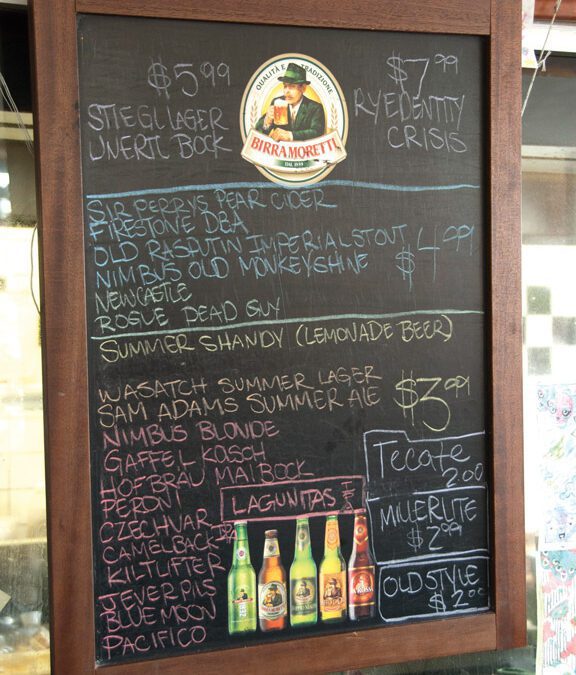 $5.99
STIEGL LAGER
UNERTL BOCK
QUALITÀ E TRADIZIONE
BIRRA MORETTI
DAL 1859
$7.99
RYEDENTITY
CRISIS
SIR PERRYS PEAR CIDER
FIRESTONE DBA
OLD RASPUTIN IMPERIAL STOUT
NIMBUS OLD MONKEYSHINE
$4.99
NEWCASTLE
ROGUE DEAD GUY
SUMMER SHANDY (LEMONADE BEER)
WASATCH SUMMER LAGER
SAM ADAMS SUMMER ALE
$3.99
NIMBUS BLONDE
GAFFEL KOSCH
HOFBRÄU MAIBOCK
PERONI
CZECHVAR
CAMELBACK IPA
KILTLIFTER
JEVER PILS
BLUE MOON
PACIFICO
LAGUNITAS IPA
Tecate
2.00
MILLERLITE
$2.99
OLD STYLE
$2.00